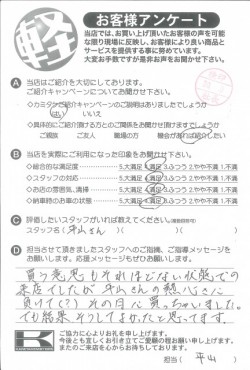 軽
お客様アンケート
当店では、お買い上げ頂いたお客様の声を可能
な限り現場に反映し、お客様により良い商品と
サービスを提供する事に努めています。
大変お手数ですが是非お声をお聞かせ下さい。
A 当店はご紹介を大切にしております。
ご紹介キャンペーンについてお聞かせ下さい。
ご紹介キャンペーンのご説明はありましたでしょうか
はい いいえ
具体的にご紹介頂ける方とのご関係をお聞かせ頂けますでしょうか
ご親族 ご友人 職場の方 機会があれば紹介したい
B 当店を実際にご利用になった印象をお聞かせ下さい。
総合的な満足度 5.大満足 4.満足 3.ふつう 2.やや不満 1.不満
スタッフの対応 5.大満足 4.満足 3.ふつう 2.やや不満 1.不満
お店の雰囲気、清掃 5.大満足 4.満足 3.ふつう 2.やや不満 1.不満
納車時のお車の状態 5.大満足 4.満足 3.ふつう 2.やや不満 1.不満
C 評価したいスタッフがいれば教えてください。
スタッフ名( 平山さん )
D 担当させて頂きましたスタッフへのご指摘、ご指導メッセージを
お願いします。応援メッセージもお待ちしております。
買う意思もそれほどない状態での
来店でしたが平山さんの熱心さに
負けて(?)その日に買っちゃいました。
でも結果そうしてよかったと思ってます。
ご協力に心よりお礼を申し上げます。
今後とも宜しくお引き立てご愛顧の程お願い申し上げます。
またのご来店を心からお待ちしております。
担当( 平山 )